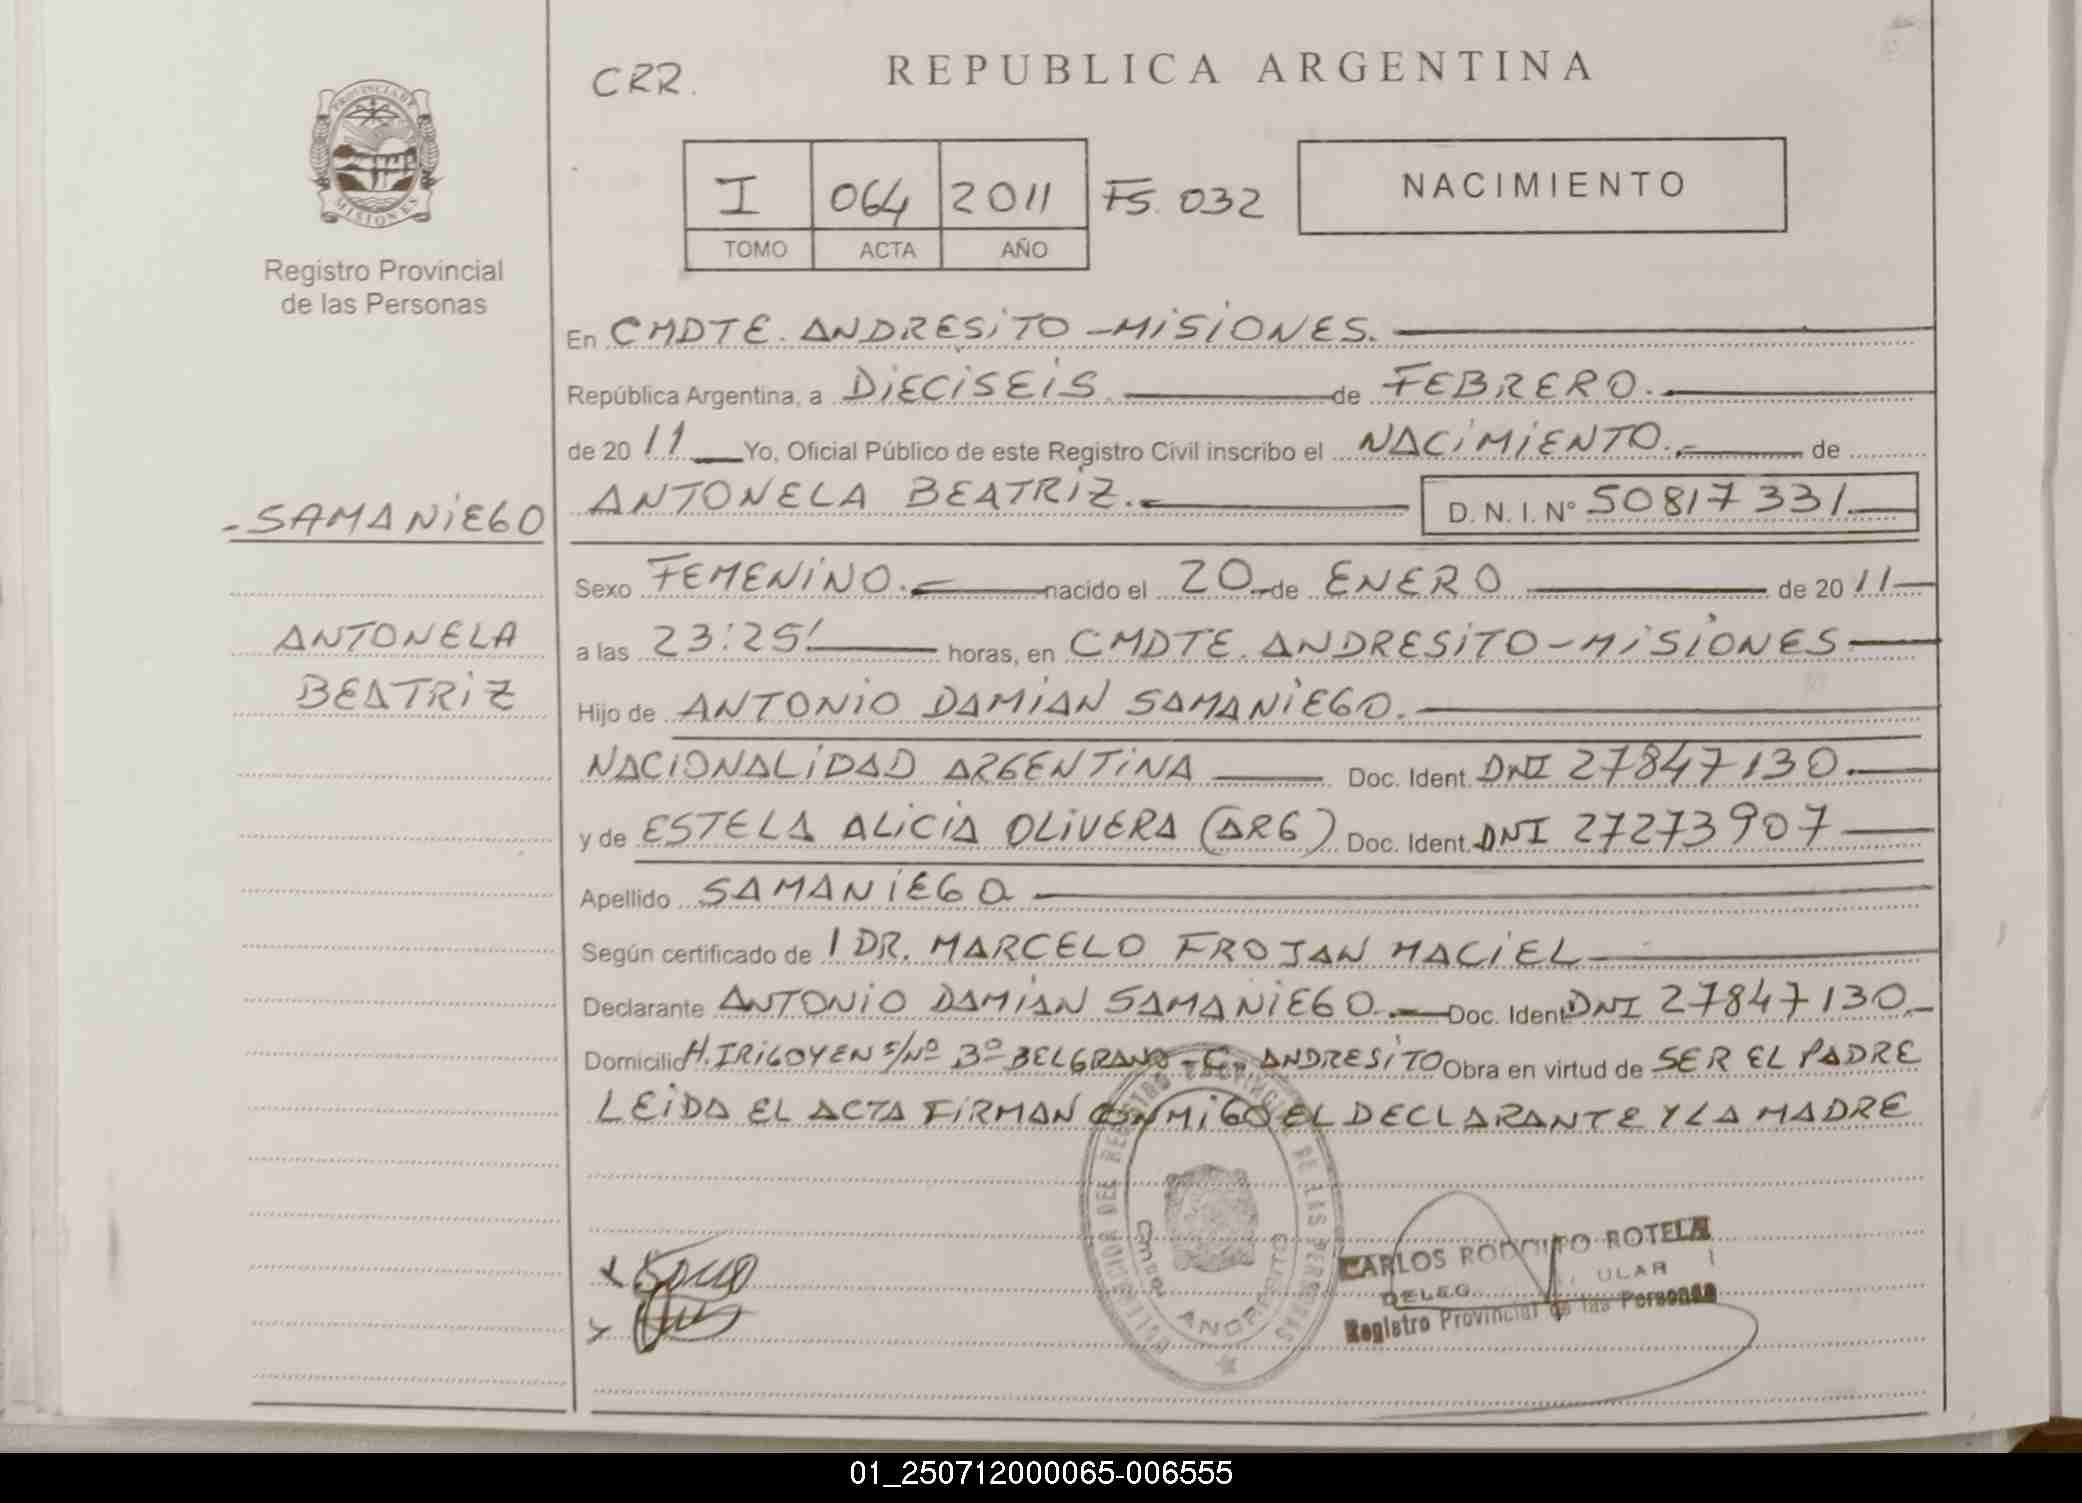 CRR.
REPUBLICA ARGENTINA
PROVINCIA DE
MISIONES
I 064 2011 FS. 032
TOMO ACTA AÑO
NACIMIENTO
Registro Provincial
de las Personas
En CMDTE. ANDRESiTO - MiSiONES.
República Argentina, a DiECiSEiS de FEBRERO.
de 2011 Yo, Oficial Público de este Registro Civil inscribo el NACiMiENTO. de
- SAMANiEGO
ANTONELA BEATRiZ. D. N. I. Nº 50817331.
Sexo FEMENiNO. nacido el 20 de ENERO de 2011
ANTONELA
BEATRiZ
a las 23:25! horas, en CMDTE. ANDRESiTO - MiSiONES
Hijo de ANTONiO DAMiAN SAMANiEGO.
NACiONALiDAD ARGENTiNA Doc. Ident. DNI 27847130.
y de ESTELA ALiCiA OLiVERA (ARG) Doc. Ident. DNI 27273907
Apellido SAMANiEGO
Según certificado de / DR. MARCELO FROJAN MACiEL
Declarante ANTONiO DAMiAN SAMANiEGO. Doc. Ident DNI 27847130.
Domicilio H. IRiGOYEN s/Nº Bº BELGRANO - C. ANDRESiTO Obra en virtud de SER EL PADRE
LEiDA EL ACTA FiRMAN CONMiGO EL DECLARANTE Y LA MADRE
DEL REGISTRO PROVINCIAL DE LAS PERSONAS
ANDRESITO
CARLOS RODOLFO ROTELA
Registro Provincial de las Personas
01_250712000065-006555